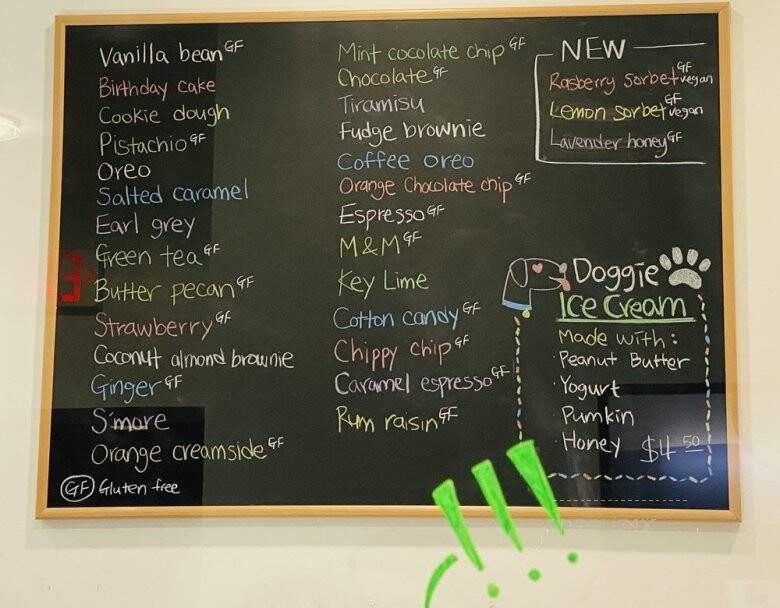 Vanilla bean GF
Birthday cake
Cookie dough
Pistachio GF
Oreo
Salted caramel
Earl grey
Green tea GF
Butter pecan GF
Strawberry GF
Coconut almond brownie
Ginger GF
S'more
Orange creamside GF
GF Gluten free
Mint cocolate chip GF
Chocolate GF
Tiramisu
Fudge brownie
Coffee oreo
Orange Chocolate chip GF
Espresso GF
M&M GF
Key Lime
Cotton candy GF
Chippy chip GF
Caramel espresso GF
Rum raisin GF
NEW
Rasberry sorbet GF vegan
Lemon sorbet GF vegan
Lavender honey GF
Doggie
Ice Cream
Made with:
Peanut Butter
· Yogurt
Pumkin
· Honey $4.50
!!!